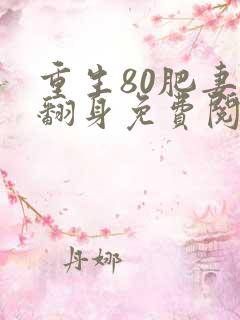 重生80肥妻
翻身免費閱
丹娜